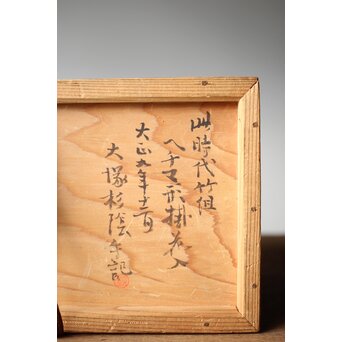 此時代竹組
ヘチマ形掛花入
大正九年十二月
大塚杉蔭手記